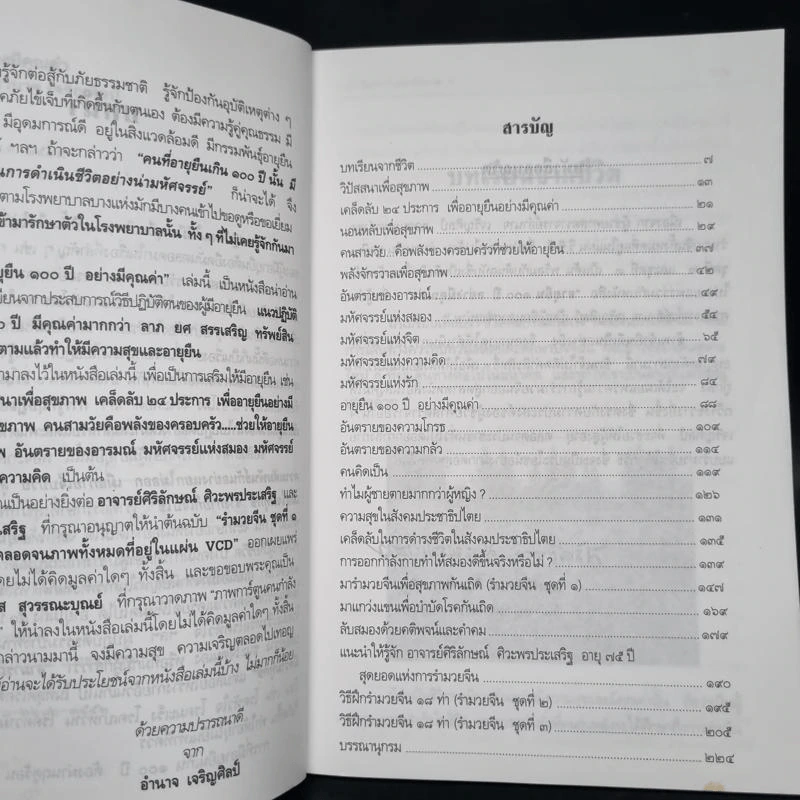 รู้จักต่อสู้กับภัยธรรมชาติ รู้จักป้องกันอุบัติเหตุต่าง ๆ
คภัยไข้เจ็บที่เกิดขึ้นกับตนเอง ต้องมีความรู้คู่คุณธรรม มี
มีอุดมการณ์ดี อยู่ในสิ่งแวดล้อมดี มีกรรมพันธุ์อายุยืน
ฯลฯ ถ้าจะกล่าวว่า “คนที่อายุยืนเกิน ๑๐๐ ปี นั้น มี
นการดำเนินชีวิตอย่างน่ามหัศจรรย์” ก็น่าจะได้ จึง
ตามโรงพยาบาลบางแห่งมักมีบางคนเข้าไปขอดูหรือขอเยี่ยม
ข้ามารักษาตัวในโรงพยาบาลนั้น ทั้ง ๆ ที่ไม่เคยรู้จักกันมา
ยุยืน ๑๐๐ ปี อย่างมีคุณค่า” เล่มนี้ เป็นหนังสือน่าอ่าน
ขียนจากประสบการณ์วิธีปฏิบัติตนของผู้มีอายุยืน แนวปฏิบัติ
๐ ปี มีคุณค่ามากกว่า ลาภ ยศ สรรเสริญ ทรัพย์สิน
ตามแล้วทำให้มีความสุขและอายุยืน
ามาลงไว้ในหนังสือเล่มนี้ เพื่อเป็นการเสริมให้มีอายุยืน เช่น
นาเพื่อสุขภาพ เคล็ดลับ ๒๔ ประการ เพื่ออายุยืนอย่างมี
ขภาพ คนสามวัยคือพลังของครอบครัว.....ช่วยให้อายุยืน
พ อันตรายของอารมณ์ มหัศจรรย์แห่งสมอง มหัศจรรย์
ความคิด เป็นต้น
ณเป็นอย่างยิ่งต่อ อาจารย์ศิริลักษณ์ ศิวะพรประเสริฐ และ
เสริฐ ที่กรุณาอนุญาตให้นำต้นฉบับ “รำมวยจีน ชุดที่ ๑
ตลอดจนภาพทั้งหมดที่อยู่ในแผ่น VCD” ออกเผยแพร่
โดยไม่ได้คิดมูลค่าใดๆ ทั้งสิ้น และขอขอบพระคุณเป็น
ส สุวรรณะบุณย์ ที่กรุณาวาดภาพ “ภาพการ์ตูนคนกำลัง
” ให้นำลงในหนังสือเล่มนี้โดยไม่ได้คิดมูลค่าใดๆ ทั้งสิ้น
กล่าวนามมานี้ จงมีความสุข ความเจริญตลอดไปเทอญ
ผู้อ่านจะได้รับประโยชน์จากหนังสือเล่มนี้บ้าง ไม่มากก็น้อย
ด้วยความปรารถนาดี
จาก
อำนาจ เจริญศิลป์
สารบัญ
บทเรียนจากชีวิต ๗
วิปัสสนาเพื่อสุขภาพ ๑๓
เคล็ดลับ ๒๔ ประการ เพื่ออายุยืนอย่างมีคุณค่า ๒๑
นอนหลับเพื่อสุขภาพ ๒๙
คนสามวัย...คือพลังของครอบครัวที่ช่วยให้อายุยืน ๓๗
พลังจักรวาลเพื่อสุขภาพ ๔๒
อันตรายของอารมณ์ ๔๙
มหัศจรรย์แห่งสมอง ๕๔
มหัศจรรย์แห่งจิต ๖๕
มหัศจรรย์แห่งความคิด ๗๙
มหัศจรรย์แห่งรัก ๘๔
อายุยืน ๑๐๐ ปี อย่างมีคุณค่า ๘๘
อันตรายของความโกรธ ๑๐๙
อันตรายของความกลัว ๑๑๔
คนคิดเป็น ๑๑๙
ทำไมผู้ชายตายมากกว่าผู้หญิง ? ๑๒๖
ความสุขในสังคมประชาธิปไตย ๑๓๑
เคล็ดลับในการดำรงชีวิตในสังคมประชาธิปไตย ๑๓๕
การออกกำลังกายทำให้สมองดีขึ้นจริงหรือไม่ ? ๑๓๙
มารำมวยจีนเพื่อสุขภาพกันเถิด (รำมวยจีน ชุดที่ ๑) ๑๔๗
มาแกว่งแขนเพื่อบำบัดโรคกันเถิด ๑๖๙
ลับสมองด้วยคติพจน์และคำคม ๑๗๙
แนะนำให้รู้จัก อาจารย์ศิริลักษณ์ ศิวะพรประเสริฐ อายุ ๗๕ ปี
สุดยอดแห่งการรำมวยจีน ๑๙๐
วิธีฝึกรำมวยจีน ๑๘ ท่า (รำมวยจีน ชุดที่ ๒) ๑๙๕
วิธีฝึกรำมวยจีน ๑๘ ท่า (รำมวยจีน ชุดที่ ๓) ๒๐๕
บรรณานุกรม ๒๒๔